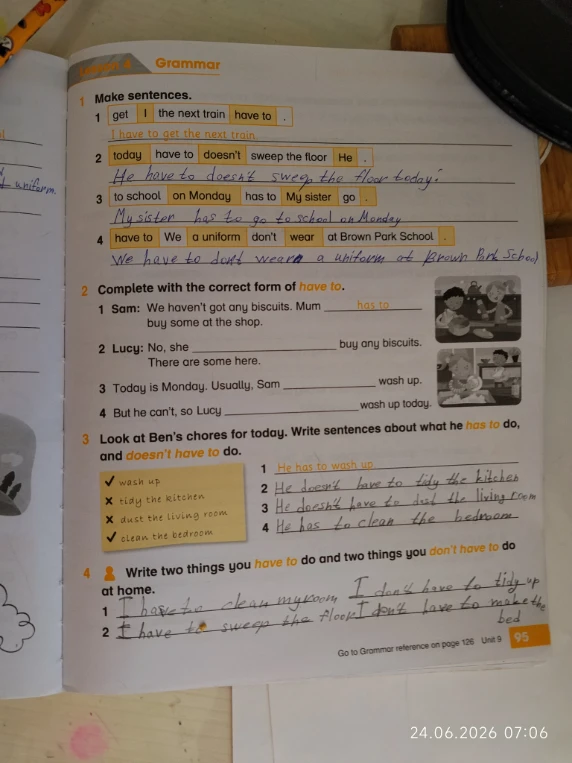 Lesson 4 Grammar
1 Make sentences.
1 get I the next train have to .
I have to get the next train.
2 today have to doesn't sweep the floor He .
He have to doesn't sweep the floor today.
uniform.
3 to school on Monday has to My sister go .
My sister has to go to school on Monday
4 have to We a uniform don't wear at Brown Park School .
We have to don't wear a uniform at Brown Park School
2 Complete with the correct form of have to.
1 Sam: We haven't got any biscuits. Mum has to
buy some at the shop.
2 Lucy: No, she ____ buy any biscuits.
There are some here.
3 Today is Monday. Usually, Sam ____ wash up.
4 But he can't, so Lucy ____ wash up today.
3 Look at Ben's chores for today. Write sentences about what he has to do,
and doesn't have to do.
✓ wash up
✗ tidy the kitchen
✗ dust the living room
✓ clean the bedroom
1 He has to wash up
2 He doesn't have to tidy the kitchen
3 He doesn't have to dust the living room
4 He has to clean the bedroom
4 Write two things you have to do and two things you don't have to do
at home.
1 I have to clean my room I don't have to tidy up
2 I have to sweep the floor I don't have to make the
bed
Go to Grammar reference on page 126 Unit 9 95
24.06.2026 07:06